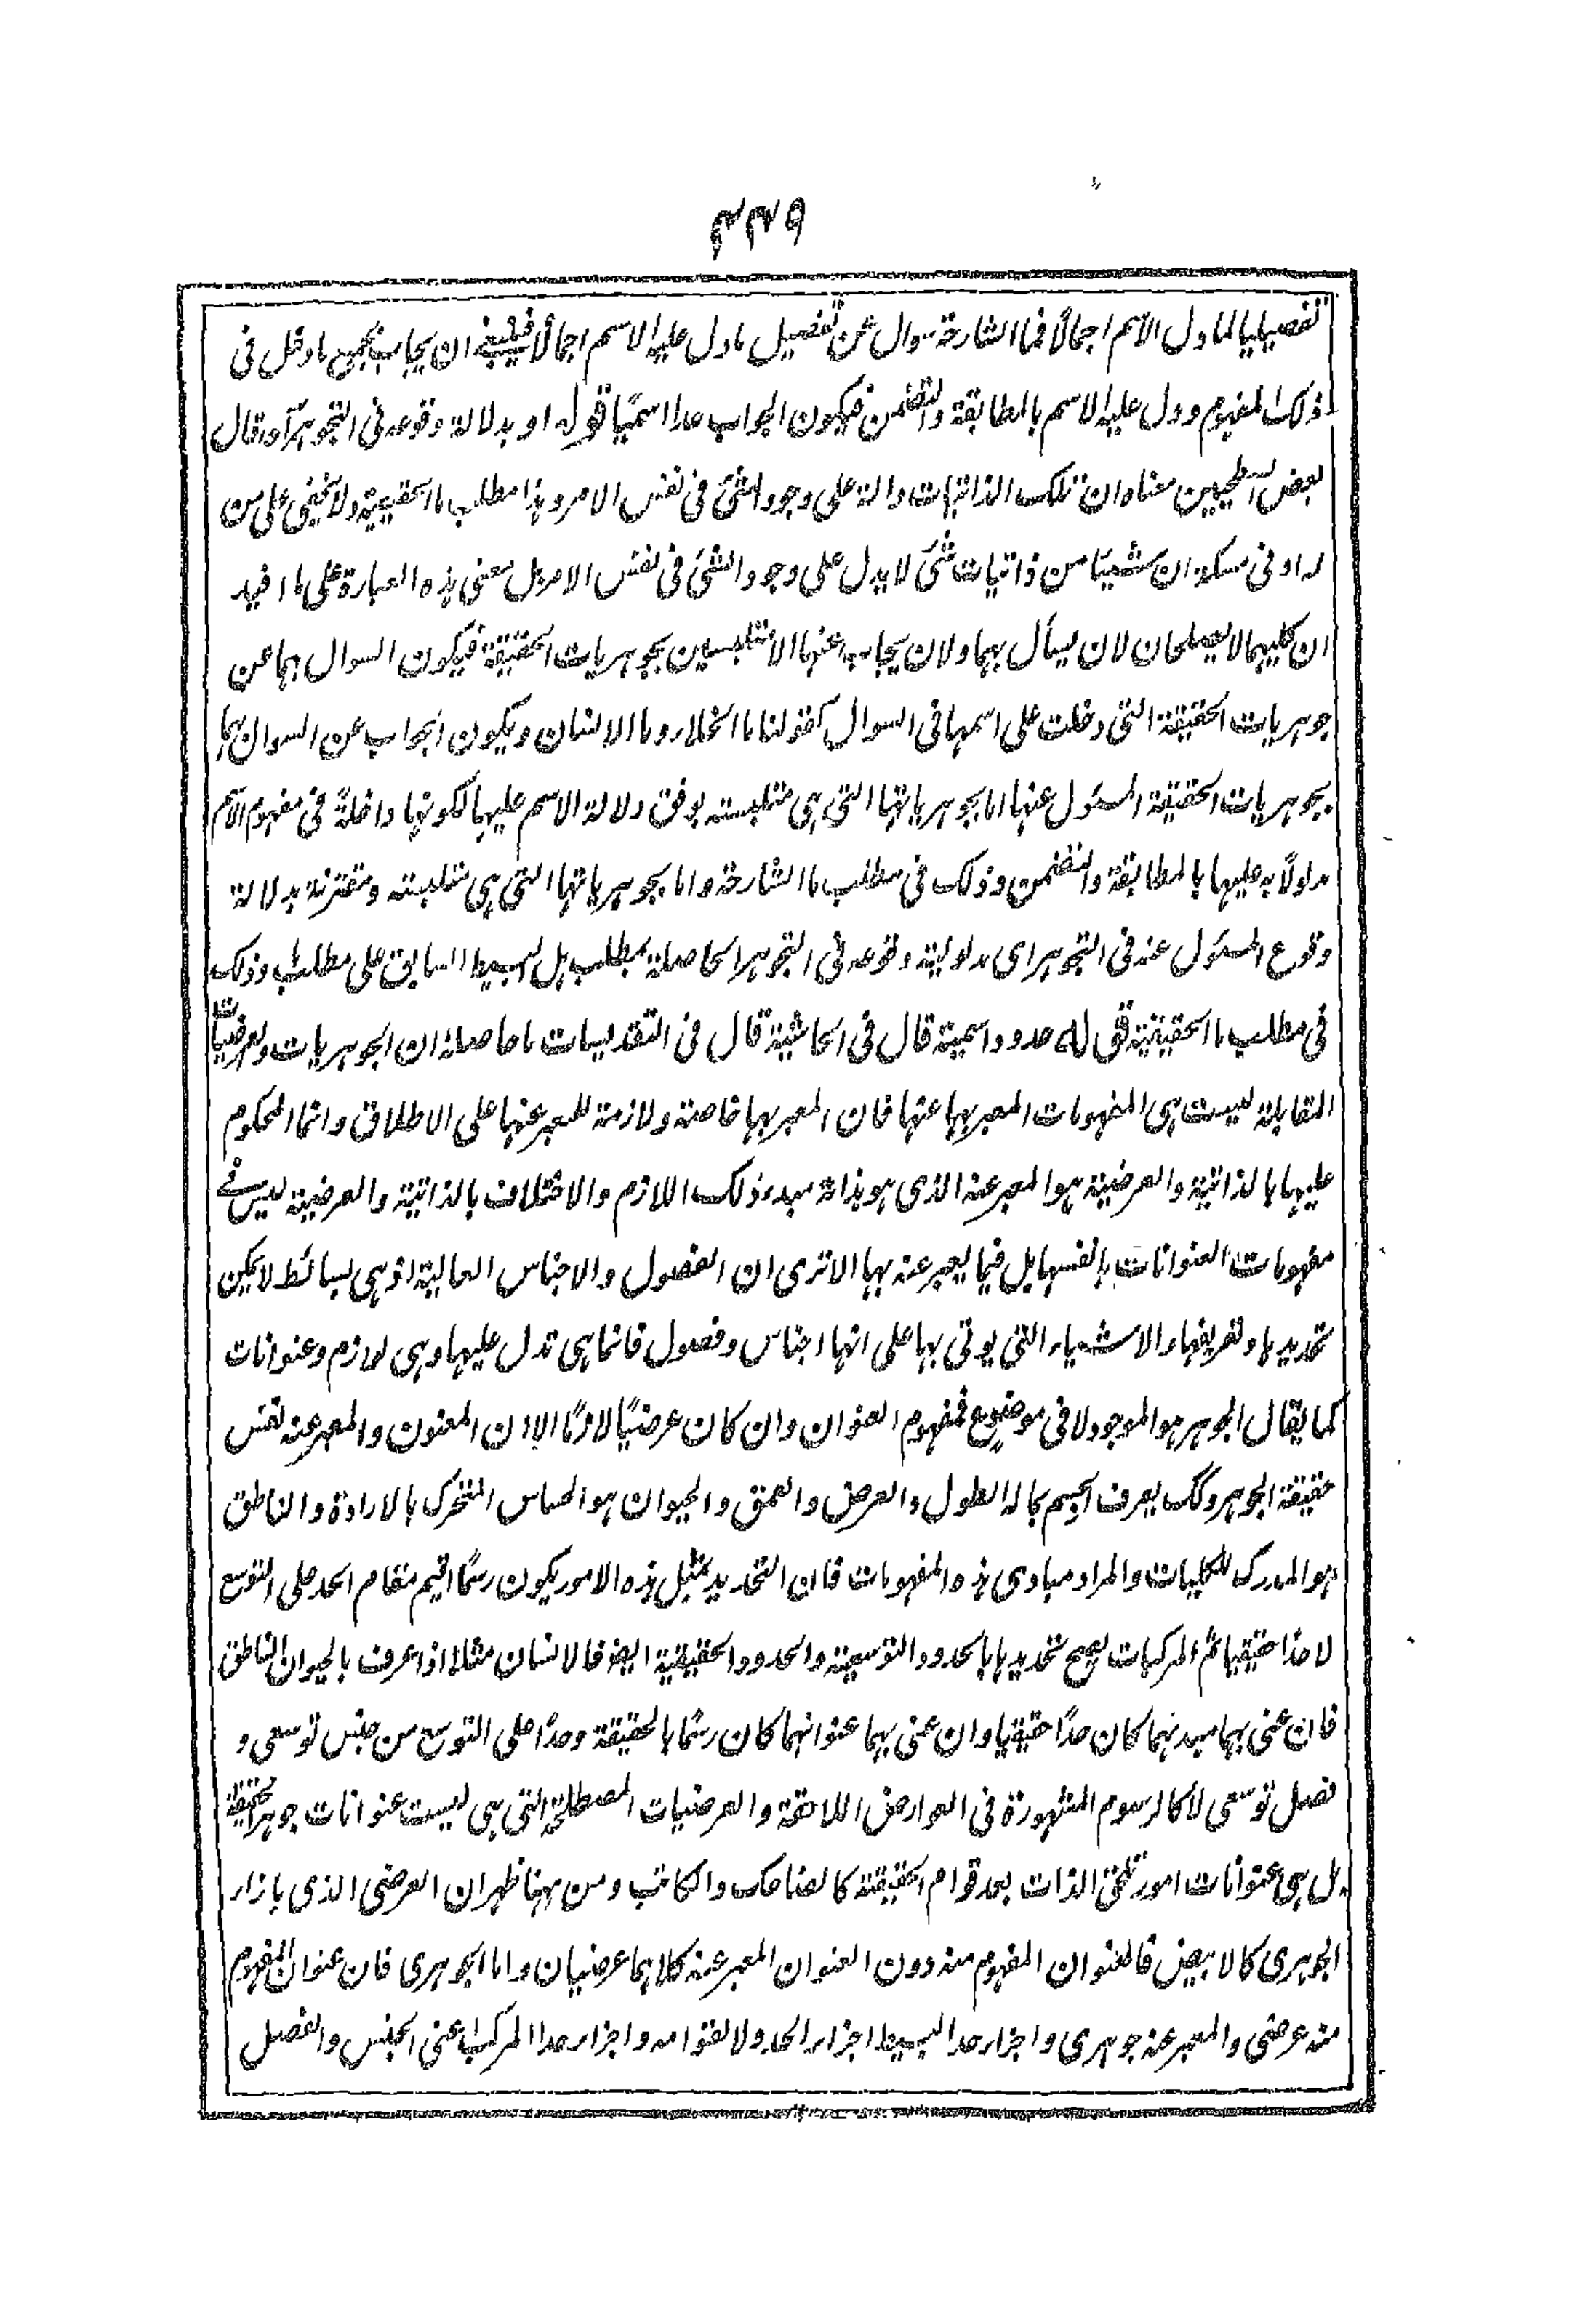 ٤٣٩
تفصيليا لما دل الاسم اجمالًا فما الشارحة سوال عن تفصيل ما دل عليه الاسم اجمالًا فينبغي ان يجاب بجميع ما دخل فى
ذلك المفهوم ودل عليه الاسم بالمطابقة والتضمن فيكون الجواب حدا اسميًا قوله او بدلالة وقوعه فى التجوهر آه قال
بعض السطحيين معناه ان تلك الذاتيات دالة على وجود الشئ فى نفس الامر وهذا مطلب ما الحقيقية ولا يخفى على من
له ادنى مسكة ان شيئا من ذاتيات شئ لا يدل على وجود الشئ فى نفس الامر بل معنى هذه العبارة على ما افيد
ان كليهما لا يصلحان لان يسأل بهما ولان يجاب عنهما الا متلبسين بجوهريات الحقيقة فيكون السوال بهما عن
جوهريات الحقيقة التى دخلت على اسمها فى السوال كقولنا ما الخلاء وما الانسان ويكون الجواب عن السوال بهما
بجوهريات الحقيقة المسئول عنها اما بجوهرياتها التى هى متلبسته بوفق دلالة الاسم عليها لكونها داخلةً فى مفهوم الاسم
مدلولًا به عليها بالمطابقة والتضمن وذلك فى مطلب ما الشارحة واما بجوهرياتها التى هى متلبسته ومقترنة بدلالة
وقوع المسئول عنه فى التجوهر اى مدلولية وقوعه فى التجوهر الحاصلة بمطلب هل البسيط السابق على مطلب وذلك
فى مطلب ما الحقيقية قوله حدود اسمية قال فى الحاشية قال فى التقديسات ما حاصله ان الجوهريات والعرضيات
المتقابلة ليست هى المفهومات المعبر بها عنها فان المعبر بها خاصة ولازمة للمعبر عنها على الاطلاق وانما المحكوم
عليها بالذاتية والعرضية هو المعبر عنه الذى هو بذاته مبدء ذلك اللازم والاختلاف بالذاتية والعرضية ليس فى
مفهومات العنوانات بانفسها بل فيما يعبر عنه بها الا ترى ان الفصول والاجناس العالية اذ هى بسائط لا يمكن
تحديدها وتعريفها والاشياء التى يوتى بها على انها اجناس وفصول فانما هى تدل عليها وهى لوازم وعنوانات
كما يقال الجوهر هو الموجود لا فى موضوع فمفهوم العنوان وان كان عرضيًا لازمًا الا ان المعنون والمعبر عنه نفس
حقيقة الجوهر وكك يعرف الجسم بما له الطول والعرض والعمق والحيوان هو الحساس المتحرك بالارادة والناطق
هو المدرك للكليات والمراد مبادى هذه المفهومات فان التحديد بمثل هذه الامور يكون رسمًا اقيم مقام الحد على التوسع
لا حدًا حقيقيا ثم المركبات يصح تحديدها بالحدود التوسعية والحدود الحقيقية ايضا فالانسان مثلا اذا عرف بالحيوان الناطق
فان عنى بهما مبدئهما كان حدًا حقيقيا وان عنى بهما عنوانهما كان رسمًا بالحقيقة وحدًا على التوسع من جنس توسعى و
فصل توسعى لا كالرسوم المشهورة فى العوارض اللاحقة والعرضيات المصطلحة التى هى ليست عنوانات جوهر الحقيقة
بل هى عنوانات امور تلحق الذات بعد قوام الحقيقة كالضاحك والكاتب ومن ههنا ظهر ان العرضى الذى بازاء
الجوهرى كالابيض فالعنوان المفهوم منه دون العنوان المعبر عنه كلاهما عرضيان واما الجوهرى فان عنوان المفهوم
منه عرضى والمعبر عنه جوهرى واجزاء حد البسيط اجزاء الحد ولا لقوامه واجزاء حد المركب اعنى الجنس والفصل